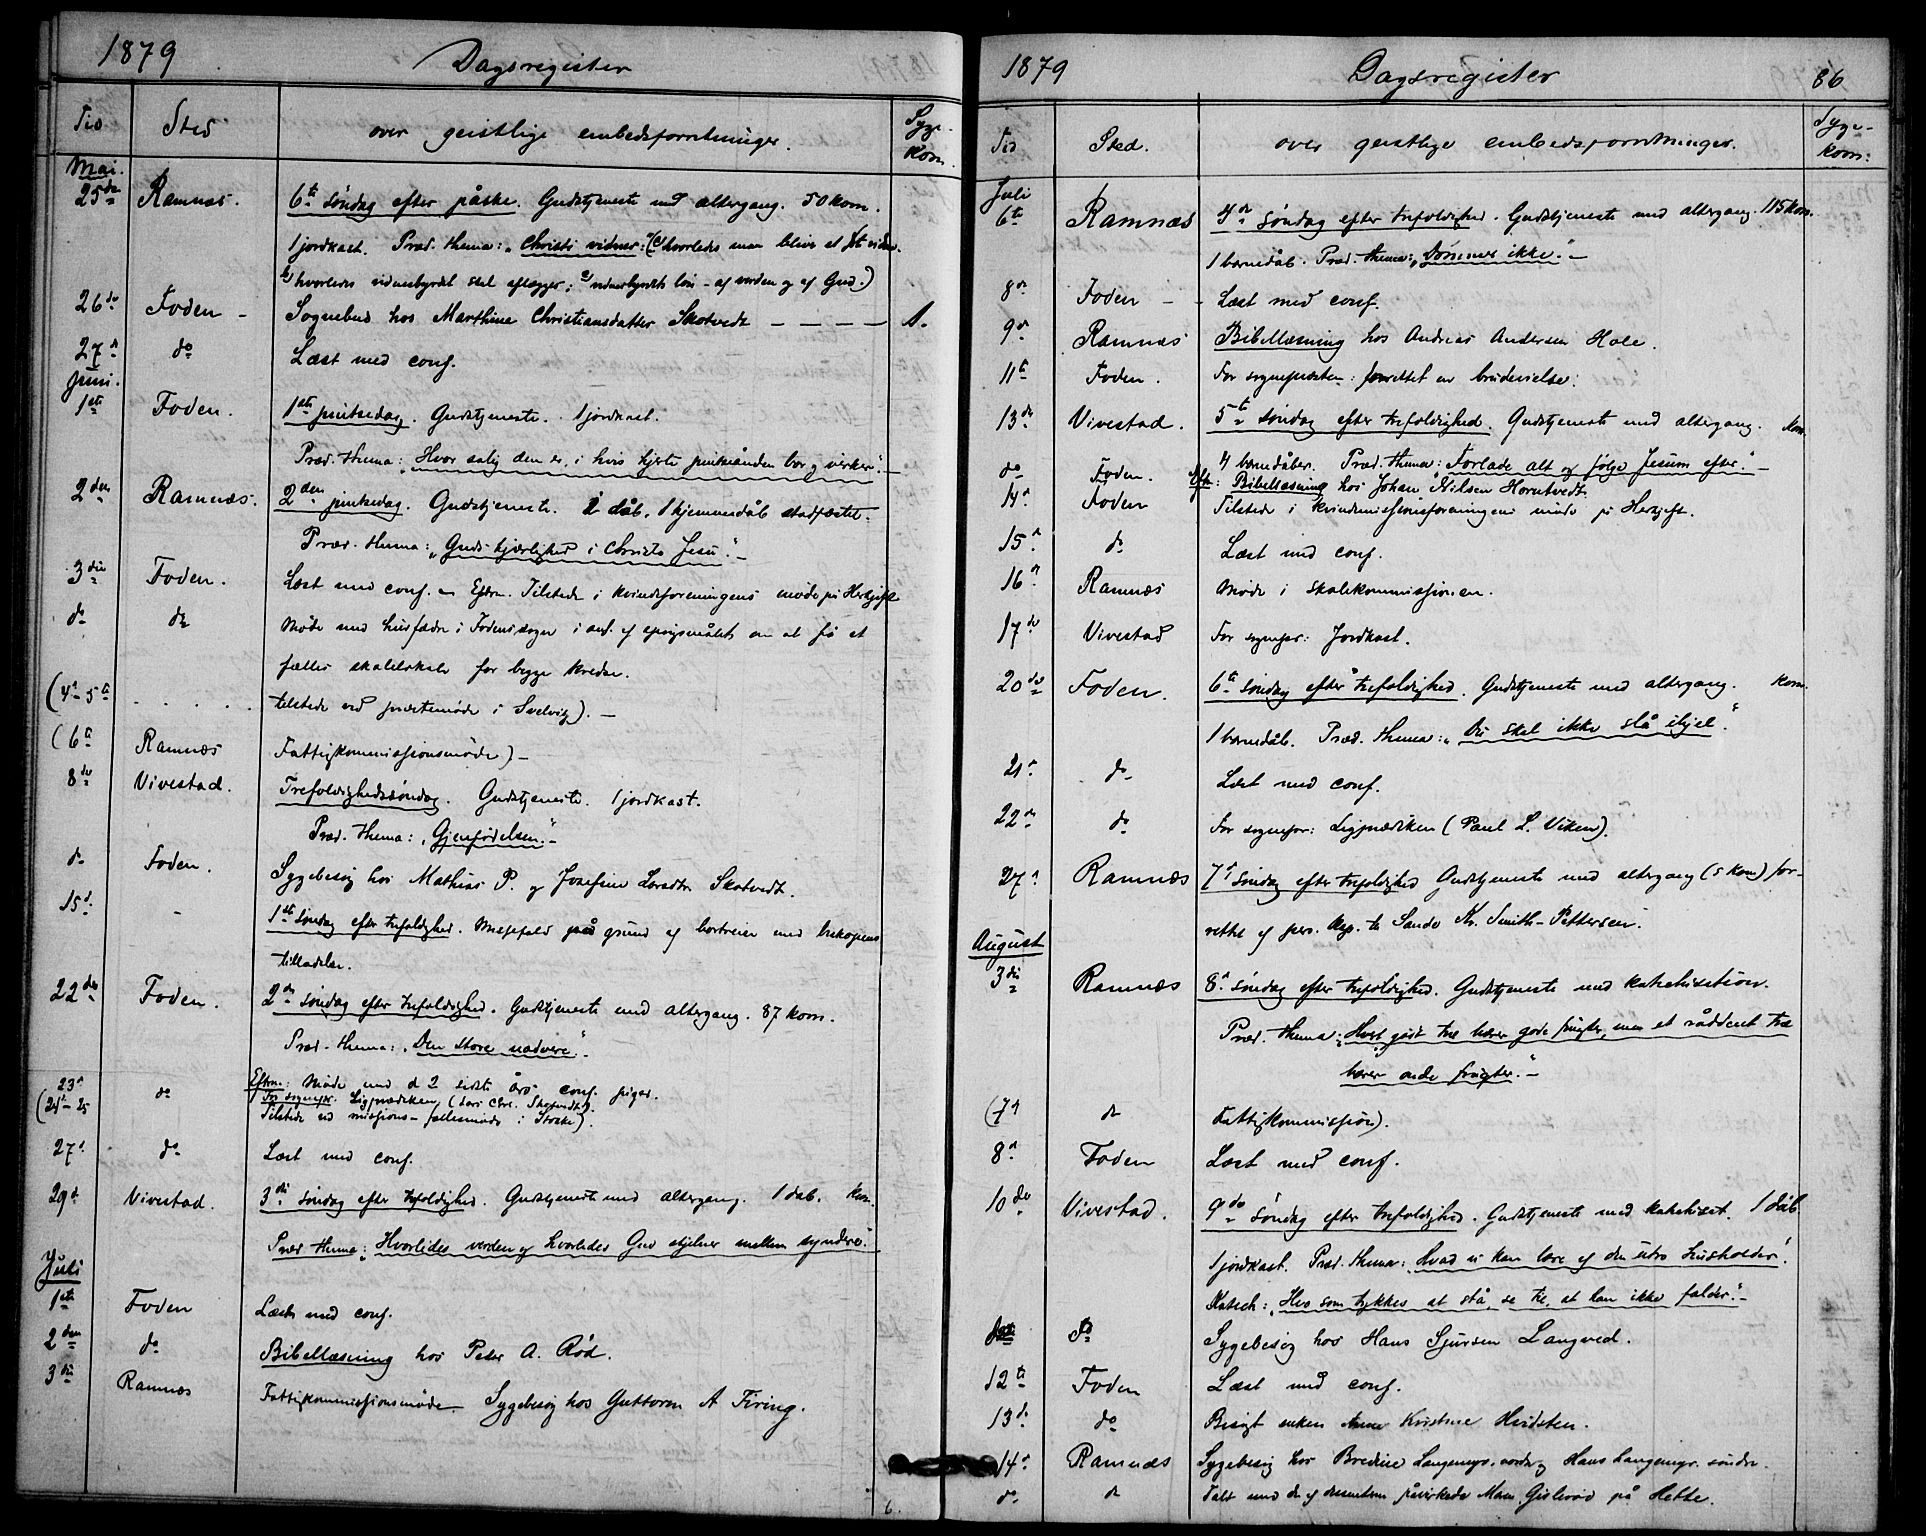 1879 Dagsregister
Tid Sted over geistlige embedsforretninger. Syge-
kom.
Mai.
25de Ramnæs. 6te søndag efter påske. Gudstjeneste med altergang. 50 kom.
1 jordkast. Præd. thema: "Christi vidner: (1) hvorledes man bliver et
2) hvorledes vidnesbyrdet skal aflægges; 3) vidnesbyrdets løn - af verden og af Gud.)
26de Foden - Sognebud hos Marthine Christiansdatter Skotvedt - - - - 1.
27de do Læst med conf.
Juni.
1ste Foden. 1ste pintsedag. Gudstjeneste. 1 jordkast.
Præd. thema: "Hvor salig den er, i hvis hjerte pintseånden bor og virker." -
2den Ramnæs. 2den pintsedag. Gudstjeneste. 2 dåb. 1 hjemmedåb stadfæstet.
Præd. thema: "Guds kjærlighed i Christo Jesu". -
3die Foden. Læst med conf. - Efterm. Tilstede i kvindeforeningens møde på Herkjift
do do Møde med husfædre i Fodens sogn i anl. af spørgsmålet om at få et
fælles skolelokale for begge kredse.
(4de - 5te . . . . . tilstede ved præstemøde i Svelvig). -
(6te Ramnæs Fattigkommissionsmøde) -
8de Vivestad. Trefoldighedssøndag. Gudstjeneste. 1 jordkast.
Præd. thema: "Gjenfødelsen". -
do Foden. Sygebesøg hos Mathias P. og Josefine Larsdtr Skotvedt.
15de - 1ste søndag efter trefoldighed. Messefald på grund af bortreise med biskopens
tilladelse.
22de Foden. 2den søndag efter trefoldighed. Gudstjeneste med altergang. 87 kom.
Præd. thema: "Den store nadvere".
23de do Efterm.: Møde med d 2 sidste års conf. piger.
For sognepr. Ligprædiken
(24de - 25 Tilstede ved missions-fællesmøde i Stokke).
27de do Læst med conf.
29de Vivestad. 3die søndag efter trefoldighed. Gudstjeneste med altergang. 1 dåb. kom.
Præd. thema: "Hvorledes verden og hvorledes Gud skjelner mellem syndere."
Juli
1ste Foden Læst med conf.
2den do Bibellæsning hos Peter A. Rød.
3die Ramnæs Fattigkommissionsmøde. Sygebesøg hos Guttorm A Firing.
6.
1879 Dagsregister 86
Tid Sted. over geistlige embedsforretninger. Syge-
kom:
Juli
6te Ramnæs 4de søndag efter trefoldighed. Gudstjeneste med altergang. 115 kom.
1 barnedåb. Præd. thema: "Dømmer ikke." -
8de Foden - - Læst med conf.
9de Ramnæs Bibellæsning hos Andreas Andersen Hole.
11te Foden. For sognepræsten: forrettet en brudevielse.
13de Vivestad. 5te søndag efter trefoldighed. Gudstjeneste med altergang. kom.
4 barnedåber. Præd. thema: "Forlade alt og følge Jesum efter." -
do Foden. Eft: Bibellæsning hos Johan Nilsen Horntvedt.
14de Foden Tilstede i kvindemissionsforeningens møde på Herkjift.
15de do Læst med conf.
16de Ramnæs Møde i skolekommissionen.
17de Vivestad For sognepr: Jordkast.
20de Foden. 6te søndag efter trefoldighed. Gudstjeneste med altergang. kom.
1 barnedåb. Præd. thema: "Du skal ikke slå ihjel".
21de do Læst med conf.
22de do For sognepr: Ligprædiken (Paul L. Viken).
27de Ramnæs 7de søndag efter trefoldighed Gudstjeneste med altergang (5 kom) for-
rettet af pers. kap. til Sande Th. Smith-Pettersen.
August
3die Ramnæs 8de søndag efter trefoldighed. Gudstjeneste med kathekisation.
Præd. thema: "Hvert godt træ bærer gode frugter, men et råddent træ
bærer onde frugter." -
(7de do Fattigkommission).
8de Foden Læst med conf.
10de Vivestad. 9de søndag efter trefoldighed. Gudstjeneste med kathekisat. 1 dåb
1 jordkast. Præd. thema: "Hvad vi kan lære af den utro husholder".
Katech: "Hvo som tykkes at stå, se til, at han ikke falder." -
do do Sygebesøg hos Hans Sjursen Langved.
12te Foden Læst med conf.
13de do Besøgt enken Anne Kristine Hvidsten.
14de Ramnæs Sygebesøg hos Bredine Langemyr nordre og Hans Langemyr søndre.
do do Talt med de af dissentere påvirkede Maren Gislerød på Hette.